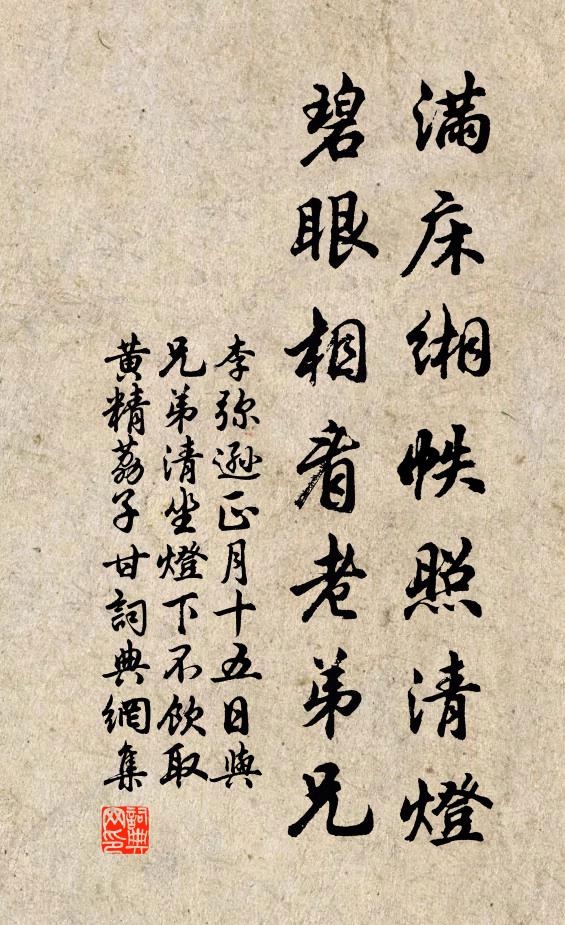 满床缃帙照清燈
碧眼相看老弟兄
李弥遜正月十五日與
兄弟清坐燈下不飲取
黄精荔子甘詞典網集
詞典
网印